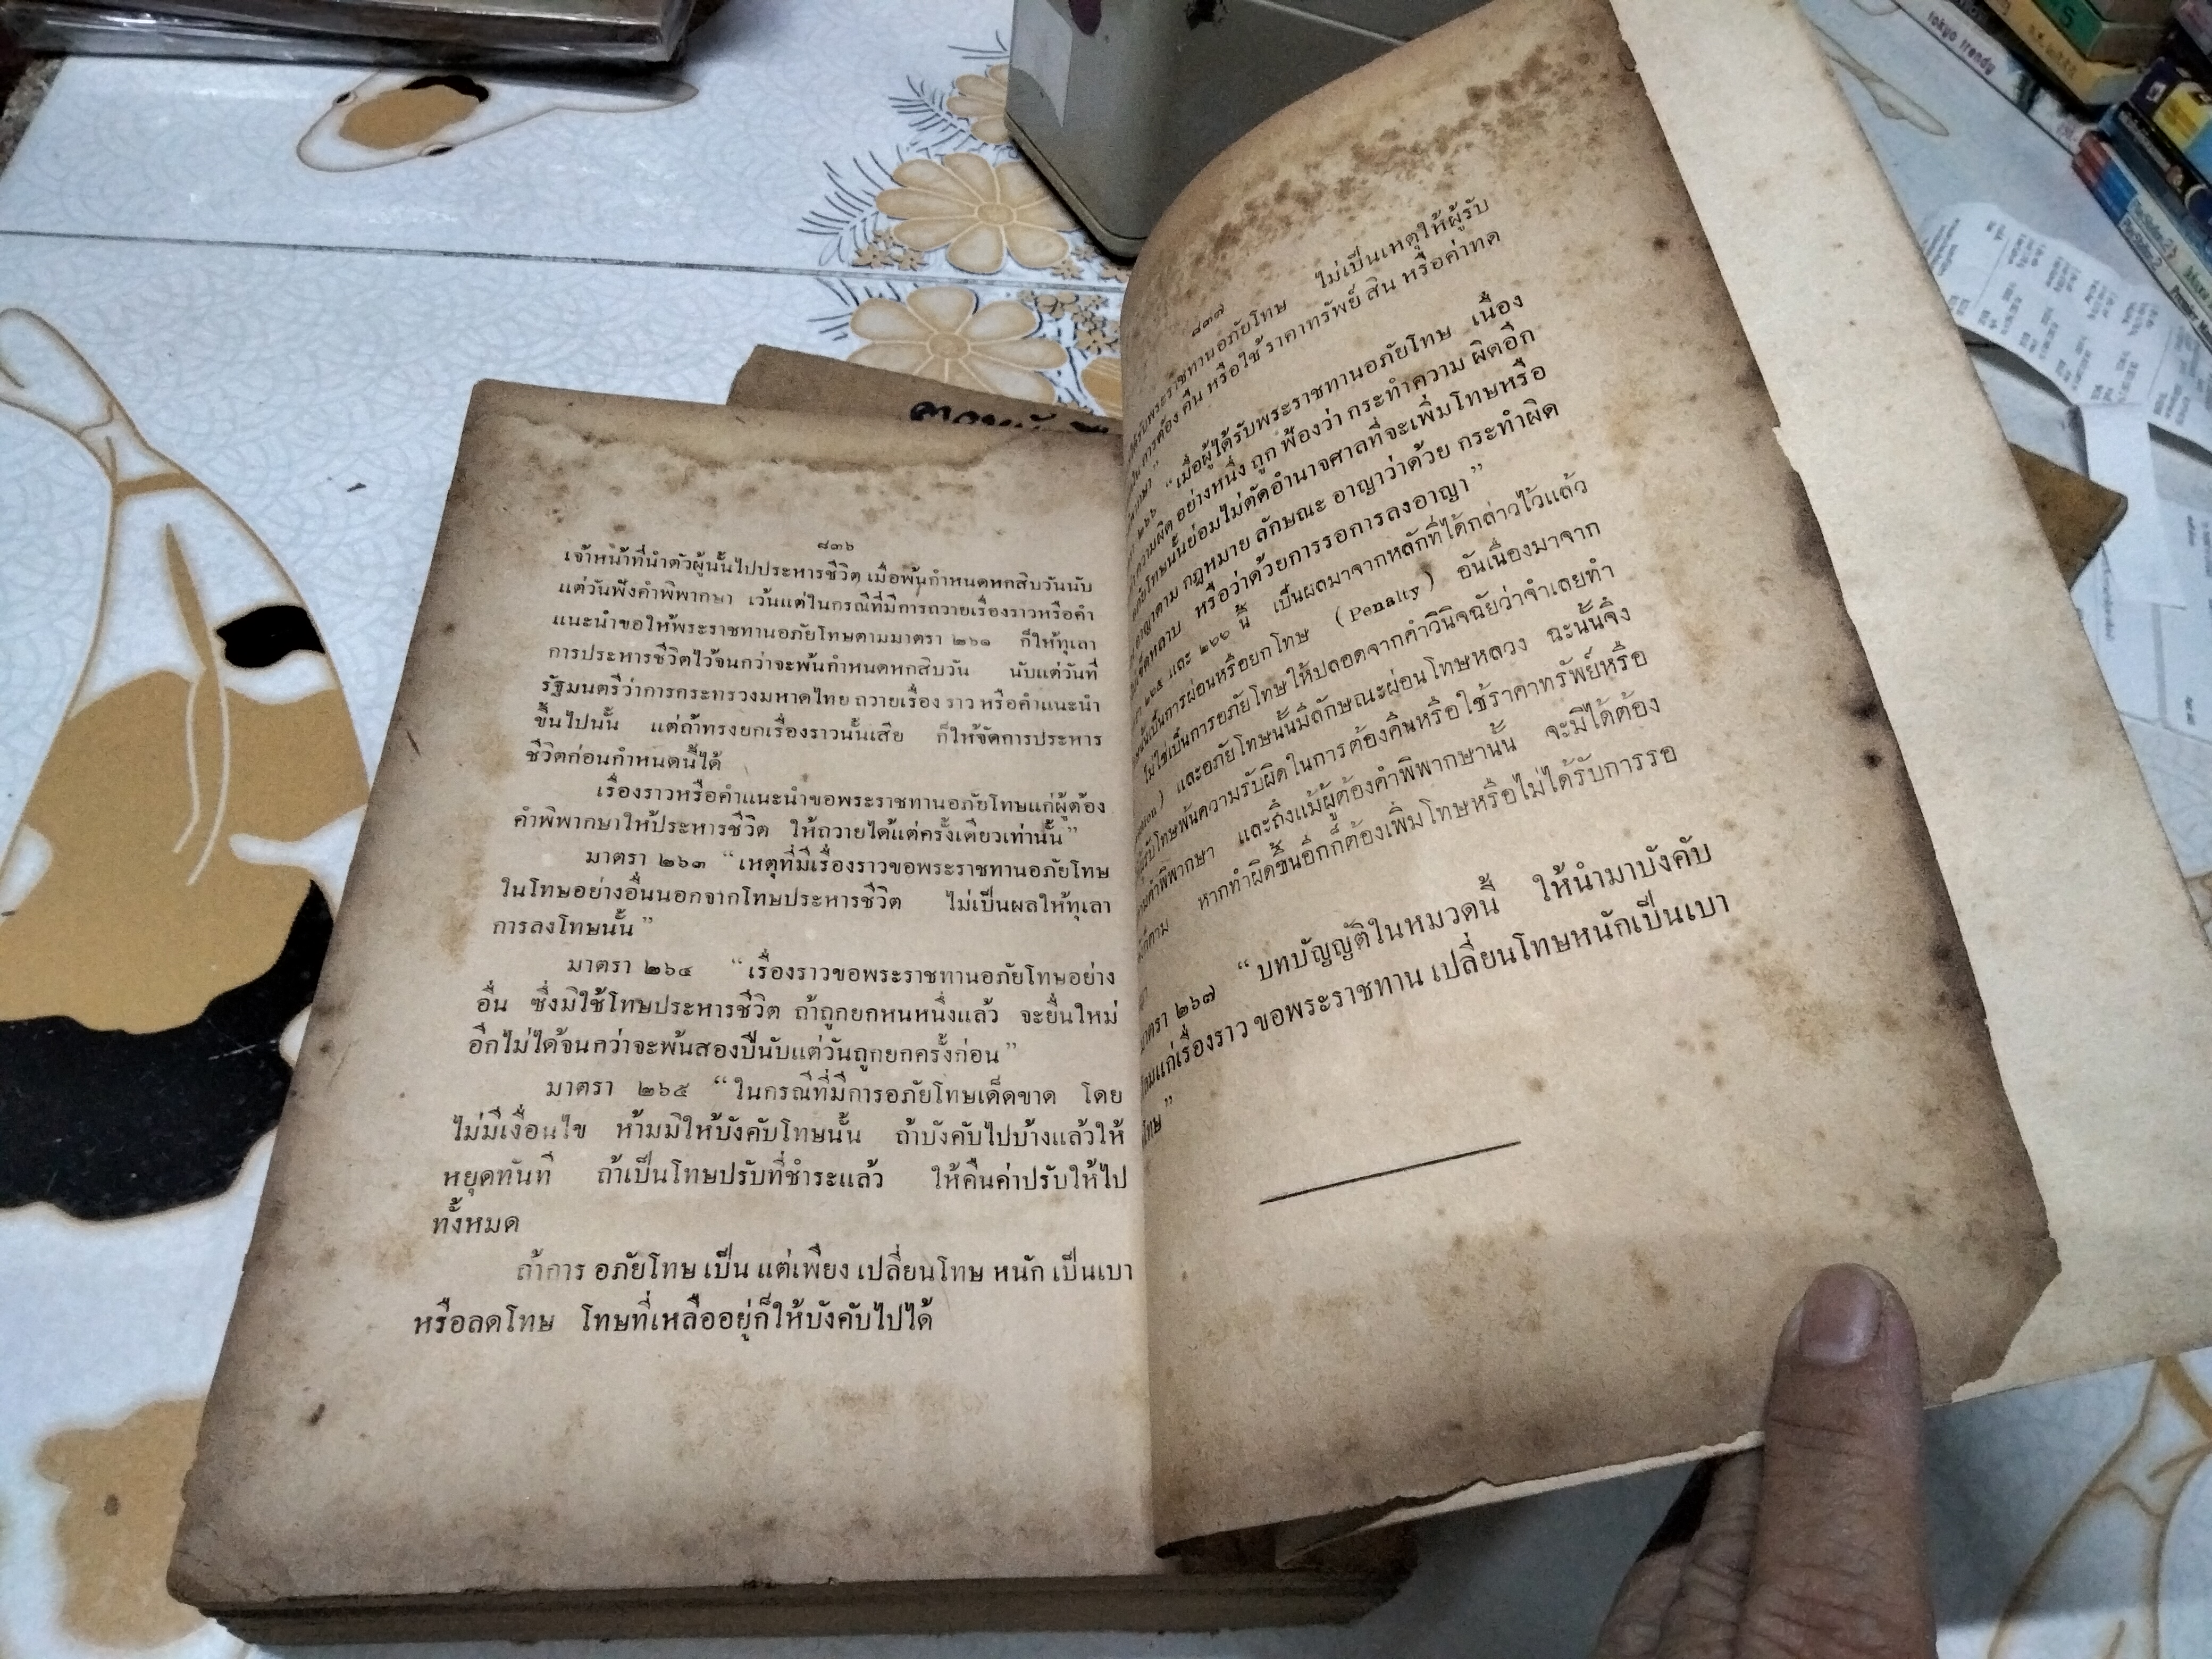 ๘๓๖
เจ้าหน้าที่นำตัวผู้นั้นไปประหารชีวิต เมื่อพ้นกำหนดหกสิบวันนับ
แต่วันฟังคำพิพากษา เว้นแต่ในกรณีที่มีการถวายเรื่องราวหรือคำ
แนะนำขอให้พระราชทานอภัยโทษตามมาตรา ๒๖๑ ก็ให้ทุเลา
การประหารชีวิตไว้จนกว่าจะพ้นกำหนดหกสิบวัน นับแต่วันที่
รัฐมนตรีว่าการกระทรวงมหาดไทย ถวายเรื่อง ราว หรือคำแนะนำ
ขึ้นไปนั้น แต่ถ้าทรงยกเรื่องราวนั้นเสีย ก็ให้จัดการประหาร
ชีวิตก่อนกำหนดนี้ได้
เรื่องราวหรือคำแนะนำขอพระราชทานอภัยโทษแก่ผู้ต้อง
คำพิพากษาให้ประหารชีวิต ให้ถวายได้แต่ครั้งเดียวเท่านั้น”
มาตรา ๒๖๓ “เหตุที่มีเรื่องราวขอพระราชทานอภัยโทษ
ในโทษอย่างอื่นนอกจากโทษประหารชีวิต ไม่เป็นผลให้ทุเลา
การลงโทษนั้น”
มาตรา ๒๖๔ “เรื่องราวขอพระราชทานอภัยโทษอย่าง
อื่น ซึ่งมิใช้โทษประหารชีวิต ถ้าถูกยกหนหนึ่งแล้ว จะยื่นใหม่
อีกไม่ได้จนกว่าจะพ้นสองปีนับแต่วันถูกยกครั้งก่อน”
มาตรา ๒๖๕ “ในกรณีที่มีการอภัยโทษเด็ดขาด โดย
ไม่มีเงื่อนไข ห้ามมิให้บังคับโทษนั้น ถ้าบังคับไปบ้างแล้วให้
หยุดทันที ถ้าเป็นโทษปรับที่ชำระแล้ว ให้คืนค่าปรับให้ไป
ทั้งหมด
ถ้าการ อภัยโทษ เป็น แต่เพียง เปลี่ยนโทษ หนัก เป็นเบา
หรือลดโทษ โทษที่เหลืออยู่ก็ให้บังคับไปได้
๘๓๗
ได้รับพระราชทานอภัยโทษ ไม่เป็นเหตุให้ผู้รับ
ใน การต้อง คืน หรือใช้ ราคาทรัพย์ สิน หรือค่าทด
๒๖๖ “เมื่อผู้ได้รับพระราชทานอภัยโทษ เนื่อง
ความผิด อย่างหนึ่ง ถูก ฟ้องว่า กระทำความ ผิดอีก
อภัยโทษนั้นย่อมไม่ตัดอำนาจศาลที่จะเพิ่มโทษหรือ
อาญาตาม กฎหมาย ลักษณะ อาญาว่าด้วย กระทำผิด
เข็ดหลาบ หรือว่าด้วยการรอการลงอาญา”
๒๖๕ และ ๒๖๖ นี้ เป็นผลมาจากหลักที่ได้กล่าวไว้แล้ว
เป็นการผ่อนหรือยกโทษ (Penalty) อันเนื่องมาจาก
ไม่ใช่เป็นการอภัยโทษให้ปลอดจากคำวินิจฉัยว่าจำเลยทำ
และอภัยโทษนั้นมีลักษณะผ่อนโทษหลวง ฉะนั้นจึ่ง
ผู้รับโทษพ้นความรับผิดในการต้องคืนหรือใช้ราคาทรัพย์หรือ
คำพิพากษา และถึงแม้ผู้ต้องคำพิพากษานั้น จะมิได้ต้อง
หากทำผิดขึ้นอีกก็ต้องเพิ่มโทษหรือไม่ได้รับการรอ
มาตรา ๒๖๗ “บทบัญญัติในหมวดนี้ ให้นำมาบังคับ
แก่เรื่องราว ขอพระราชทาน เปลี่ยนโทษหนักเป็นเบา
โทษ”
tokyo trendy
5